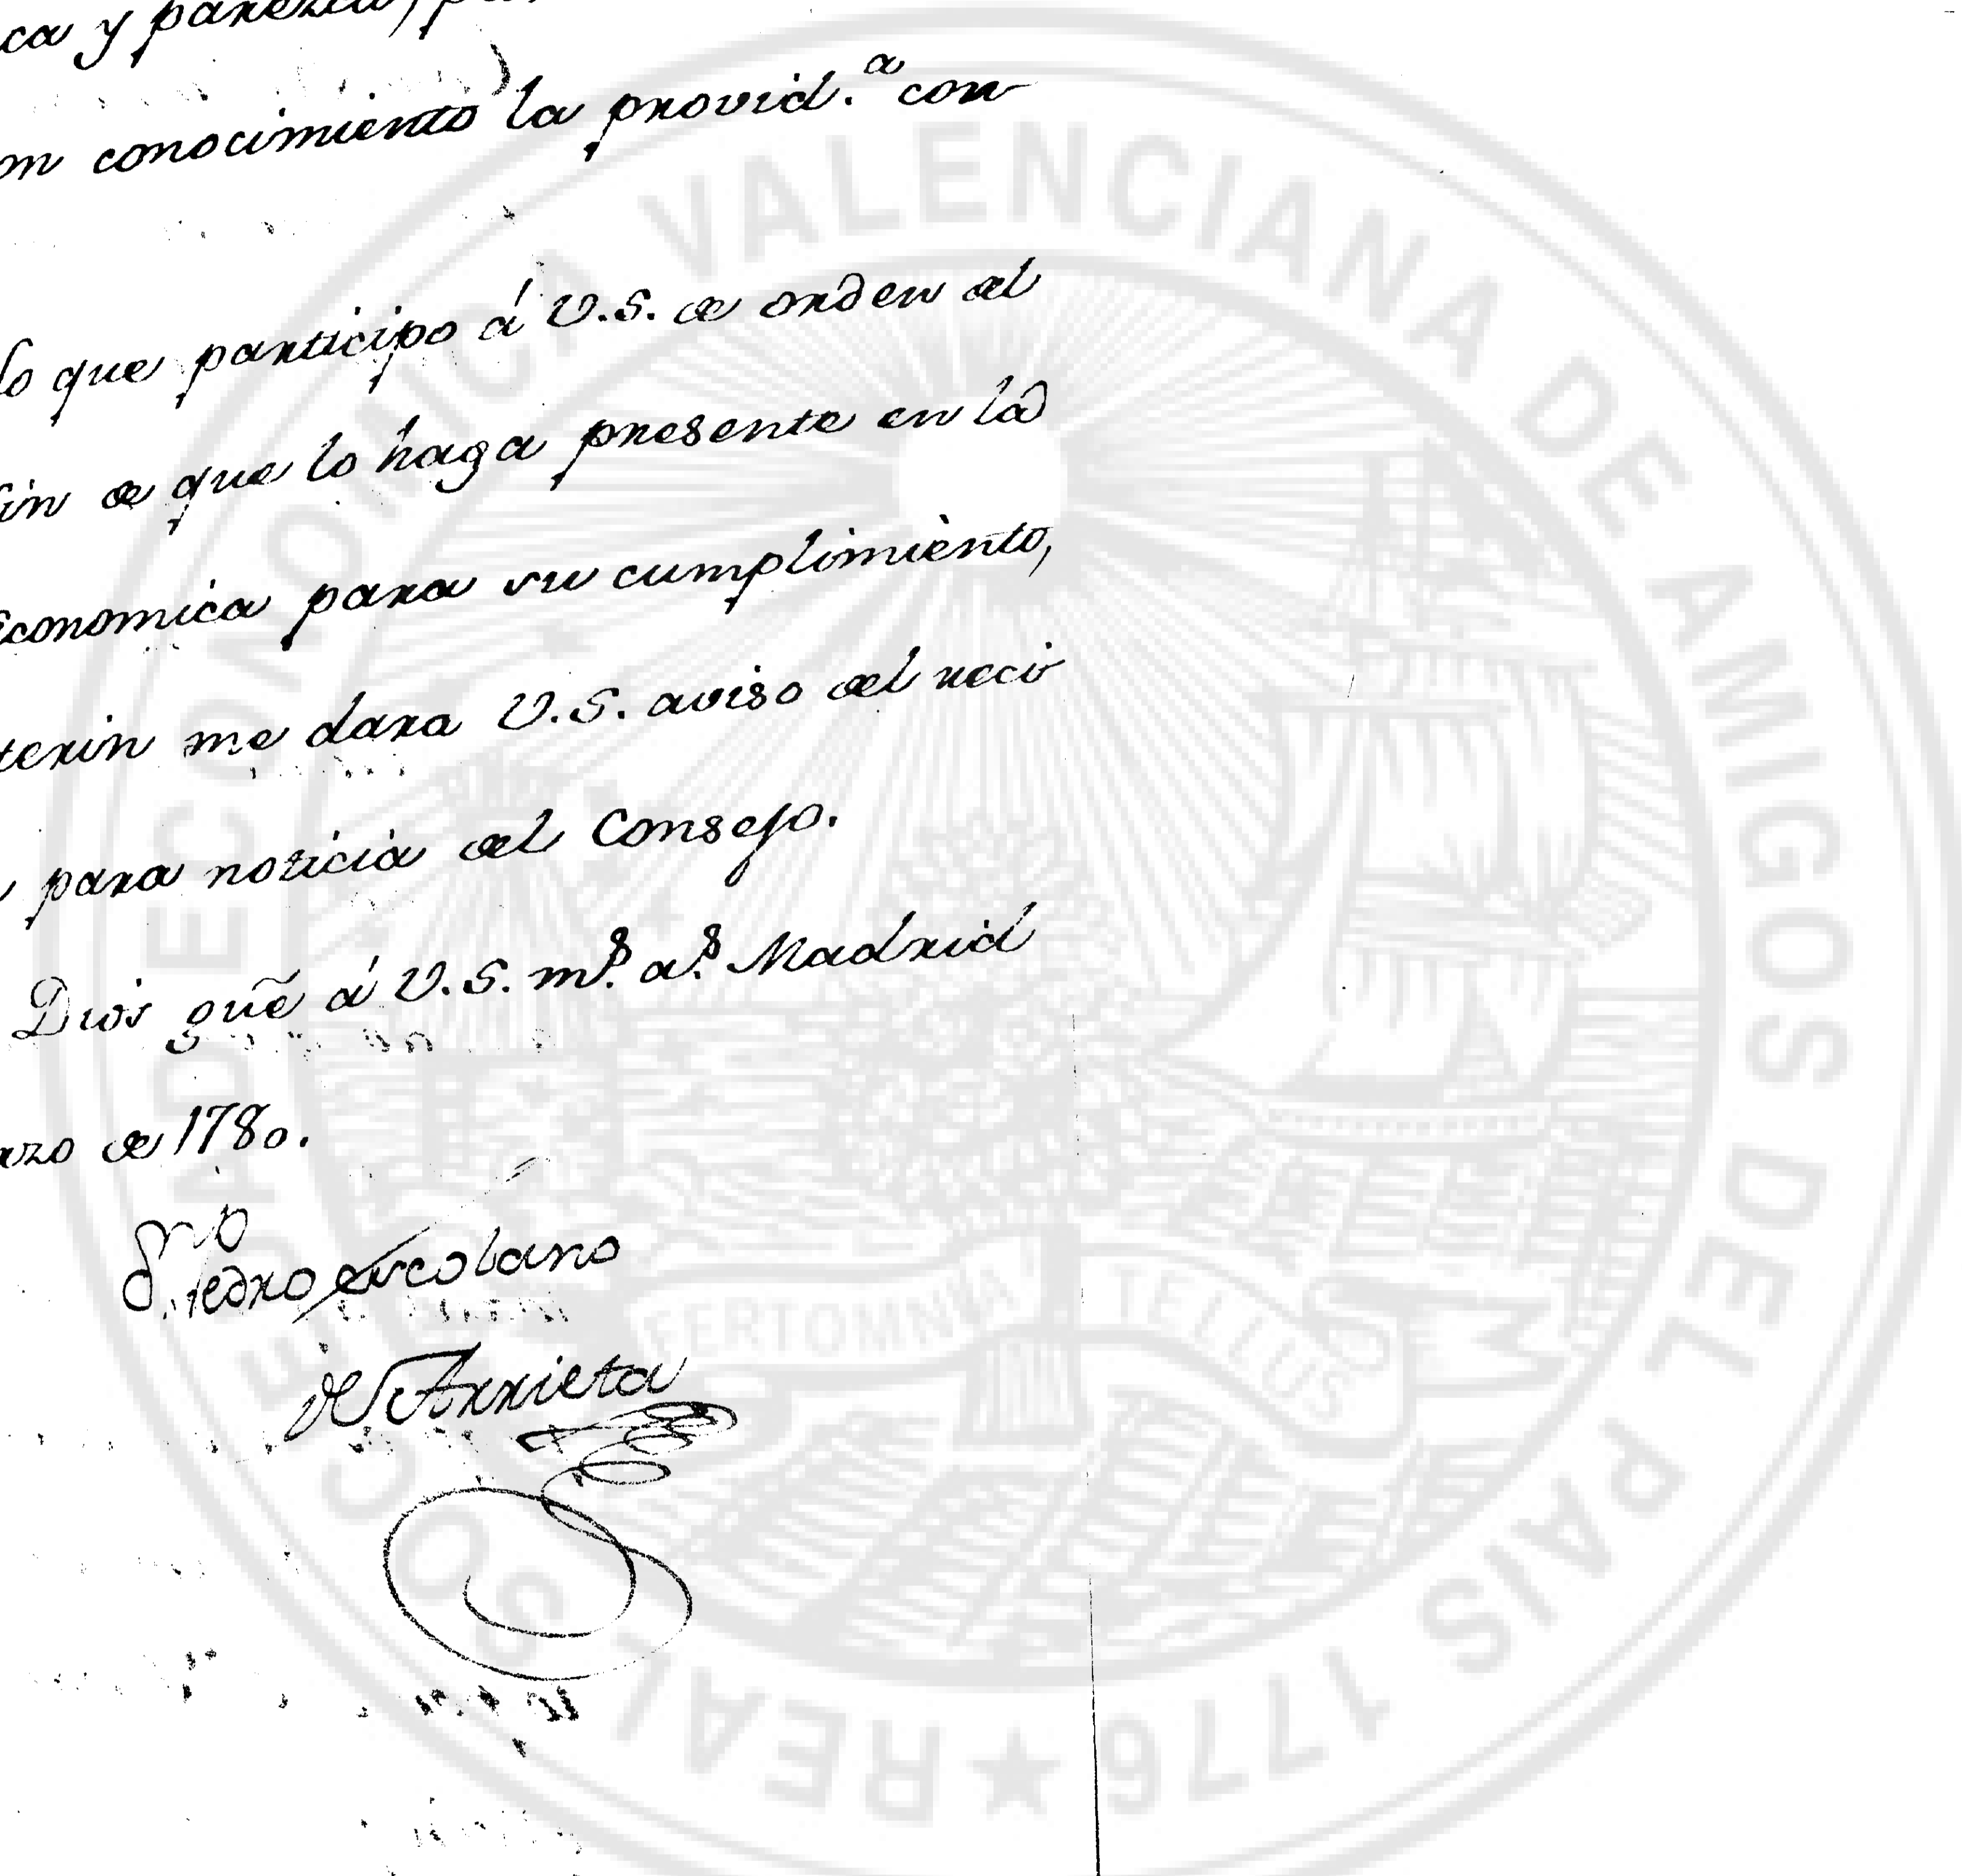 ca y parezca,
on conocimiento la provid.ª con
lo que participo á V.S. de orden del
fin de que lo haga presente en la
Economica para su cumplimiento,
terin me dara V.S. aviso del reci
para noticia del Consejo.
Dios gūe á V.S. m.s a.s Madrid
arzo de 1780.
Dn Pedro Escolano
de Arrieta
REAL SOCIEDAD ECONOMICA VALENCIANA DE AMIGOS DEL PAIS 1776